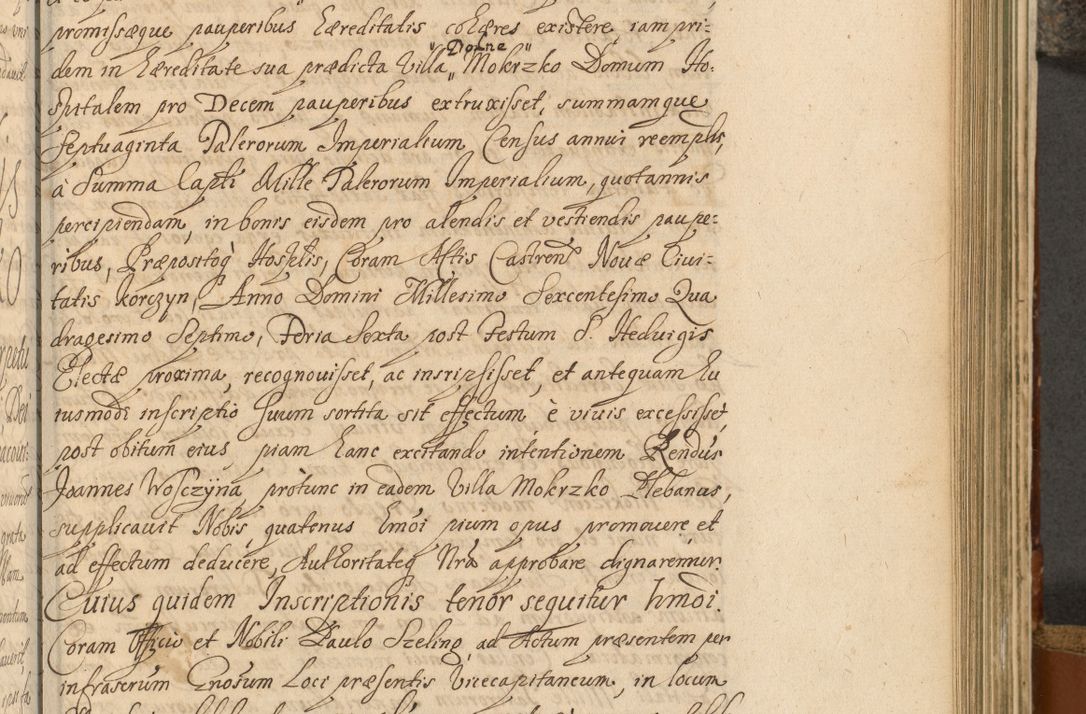 promissæque pauperibus hæreditatis cohæres existere iam pri:
"Dolne"
dem in hæreditate sua prædicta Villa „ Mokrzko Domum Ho:
spitalem pro Decem pauperibus extruxisset, summamque
Septuaginta Talerorum Imperialium Census annui reemplis,
à Summa Capti Mille Talerorum Imperialium, quotannis
percipiendam, in bonis eisdem pro alendis et vestiendis paupe:
ribus, Præpositoq Hosptlis, Coram Actis Castren Novæ Civi:
tatis Korczyn, Anno Domini Millesimo Sexcentesimo Qua
dragesimo Septimo, Feria Sexta post Festum S. Heduigis
Electæ proxima, recognouisset, ac inscripsisset, et antequam hu
iusmodi inscriptio suum sortita sit effectum, è viuis excessisset,
post obitum eius piam hanc excitando intentionem Rendus
Joannes Wosczyna, protunc in eadem Villa Mokrzko Plebanus,
supplicauit Nobis, quatenus hmoi pium opus promouere, et
ad effectum deducere, Authoritateq Nra approbare dignaremur.
Cuius quidem Inscriptionis tenor sequitur hmoi.
Coram Officio et Nobili Paulo Szeling, ad Actum præsentem per
infrascrium Gnosum Loci præsentis Vicecapitaneum, in locum